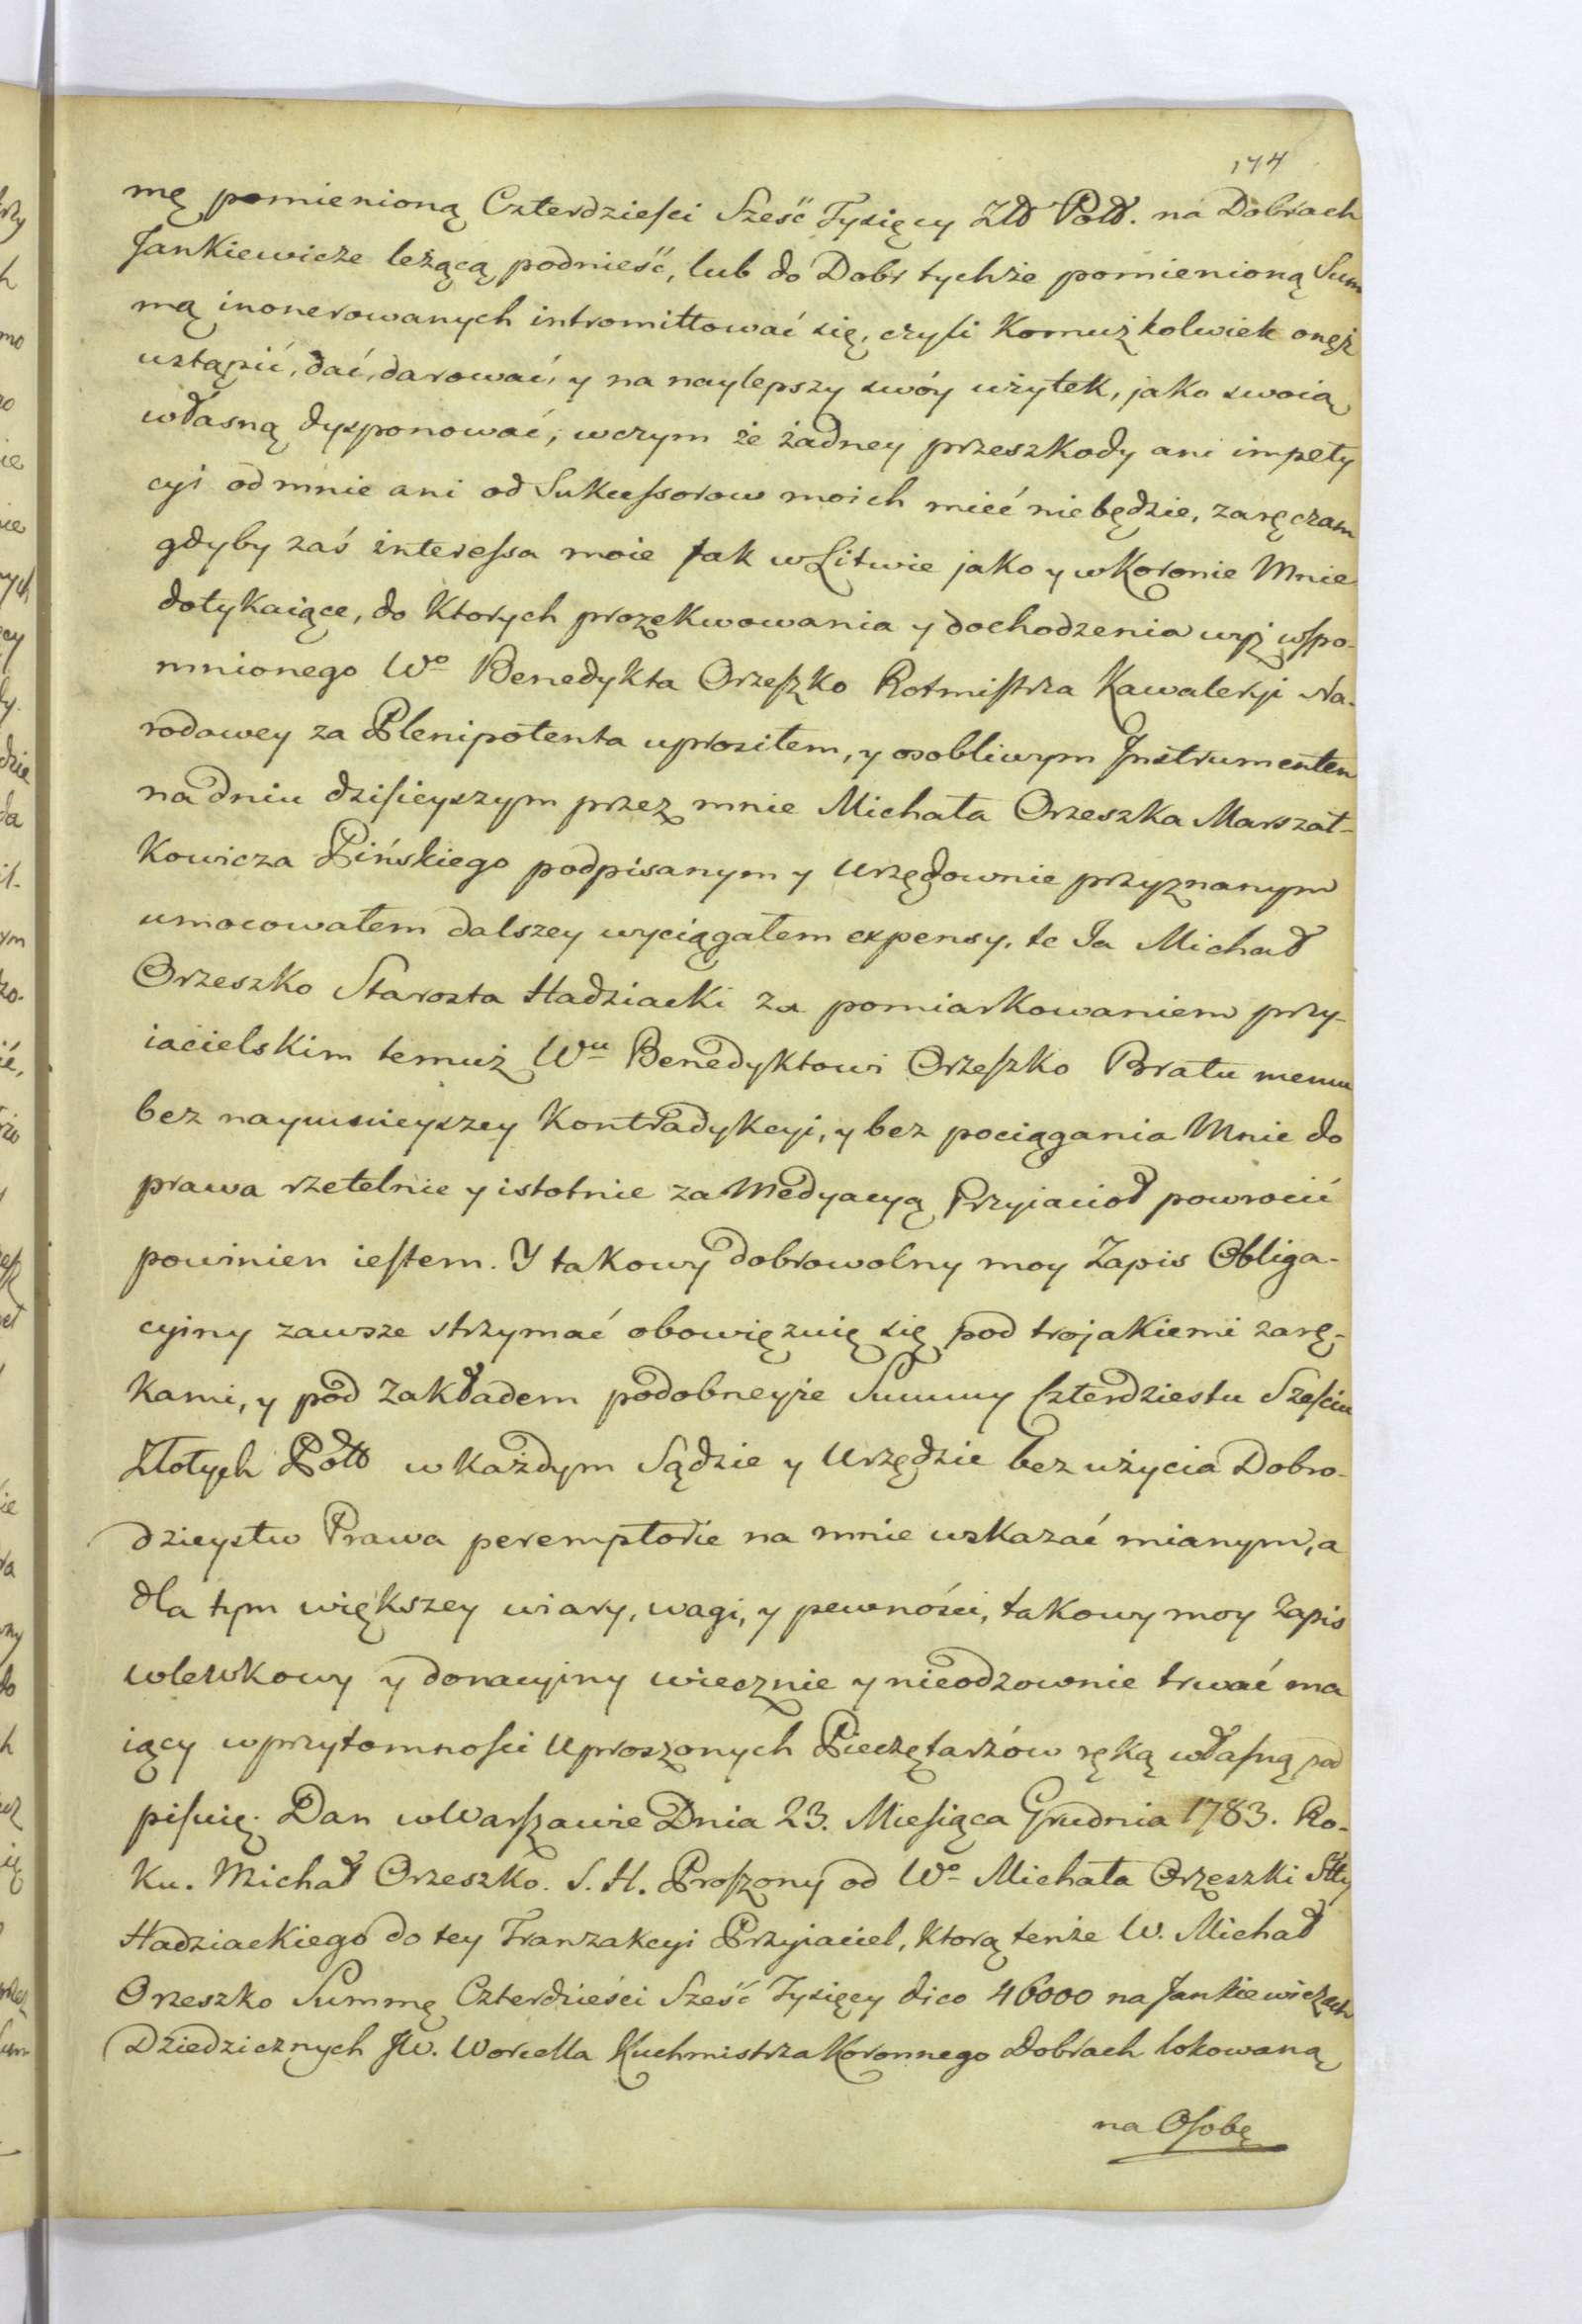 174
mę pomienioną Czterdzieſci Sześć Tysięcy Złł Poll. na Dobrach
Jankiewicze leżącą podnieść, lub do Dobr tychże pomienioną Sum
mą inonerowanych intromittować się, czyli Komużkolwiek onęż
ustąpić, dać, darować, y na naylepszy swóy użytek, jako swoią
własną dysponować, wczym że żadney przeszkody ani impety
cyi od mnie ani od Sukceſsorow moich mieć nie będzie, zaręczam
gdyby zaś intereſsa moie tak w Litwie jako y w Koronie Mnie
dotykaiące, do Ktorych prozekwowania y dochodzenia wyż wſpo-
mnionego Wo Benedykta Orzeſzko Rotmiſtrza Kawaleryi Na-
rodowey za Plenipotenta uprosiłem, y osobliwym Jnstrumentem
na dniu dziſieyszym przez mnie Michała Orzeszka Marszał-
Kowicza Pińskiego podpisanym y Urzędownie przyznanym
umocowałem dalszey wyciągałem expensy, te Ja Michał
Orzeszko Starosta Hadziacki za pomiarkowaniem przy-
iacielskim temuż Wu Benedyktowi Orzeſzko Bratu memu
bez naymnieyszey Kontradykcyi, y bez pociągania Mnie do
prawa rzetelnie y istotnie za Medyacyą Przyiacioł powrocić
powinien ieſtem. Y takowy dobrowolny moy Zapis Obliga-
cyiny zawsze strzymać obowięzuię się pod trojakiemi zarę-
Kami, y pod Zakładem podobneyże Summy Czterdziestu Sześciu
Złotych Poll w każdym Sądzie y Urzędzie bez użycia Dobro-
dzieystw Prawa peremptorie na mnie wskazać mianym, a
dla tym większey wiary, wagi, y pewności, takowy moy Zapis
wlewkowy y donacyiny wiecznie y nieodzownie trwać ma
iący w przytomnoſci Uproszonych Pieczętarzów ręką właſną pod
piſuię. Dan w Warſzawie Dnia 23. Mieſiąca Grudnia 1783. Ro-
Ku. Michał Orzeszko. S. H. Proſzony od Wo Michała Orzeszki Stty
Hadziackiego do tey Tranzakcyi Przyiaciel, Ktorą tenże W. Michał
Orzeszko Summę Czterdzieści Sześć Tysięcy dico 46000 na Jankiewiczach
Dziedzicznych JW. Worcella Kuchmistrza Koronnego Dobrach lokowaną
na Oſobę